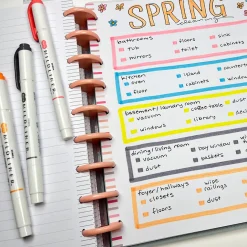 SPRING
cleaning
bathrooms
floors
sink
tub
toilet
cabinets
mirrors
kitchen
island
counters
oven
floor
cabinets
window
basement/laundry room
vacuum
coffee table
dust
windows
library
dining/living room
bay window
vacuum
baskets
dust
foyer/hallways
wipe
railings
closets
floors
dust
MILDLINER
MILDLINER
MILDLINER